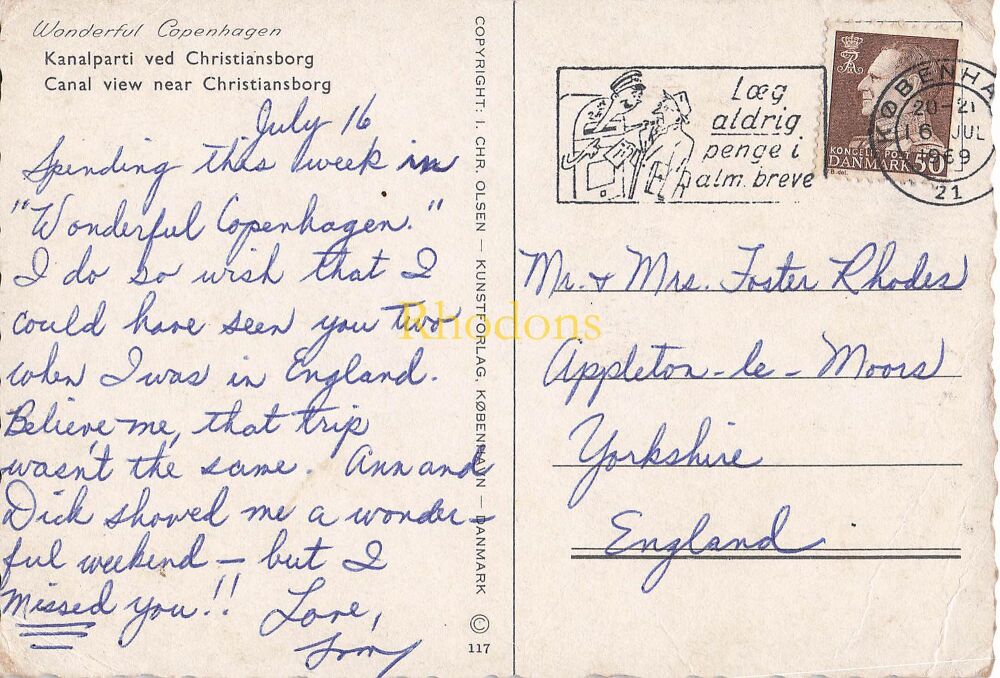 Wonderful Copenhagen
Kanalparti ved Christiansborg
Canal view near Christiansborg
July 16
Spending this week in
"Wonderful Copenhagen."
I do so wish that I
could have seen you two
when I was in England.
Believe me, that trip
wasn't the same. Ann and
Dick showed me a wonder-
ful weekend - but I
missed you!! Love,
COPYRIGHT: I. CHR. OLSEN — KUNSTFORLAG, KØBENHAVN — DANMARK ©
117
Læg
aldrig
penge i
alm. breve
KØBENHA
20-21
16 JUL
1969
21
DANMARK 50
Mr. & Mrs. Foster Rhodes
Appleton-le-Moors
Yorkshire
England
Rhodons